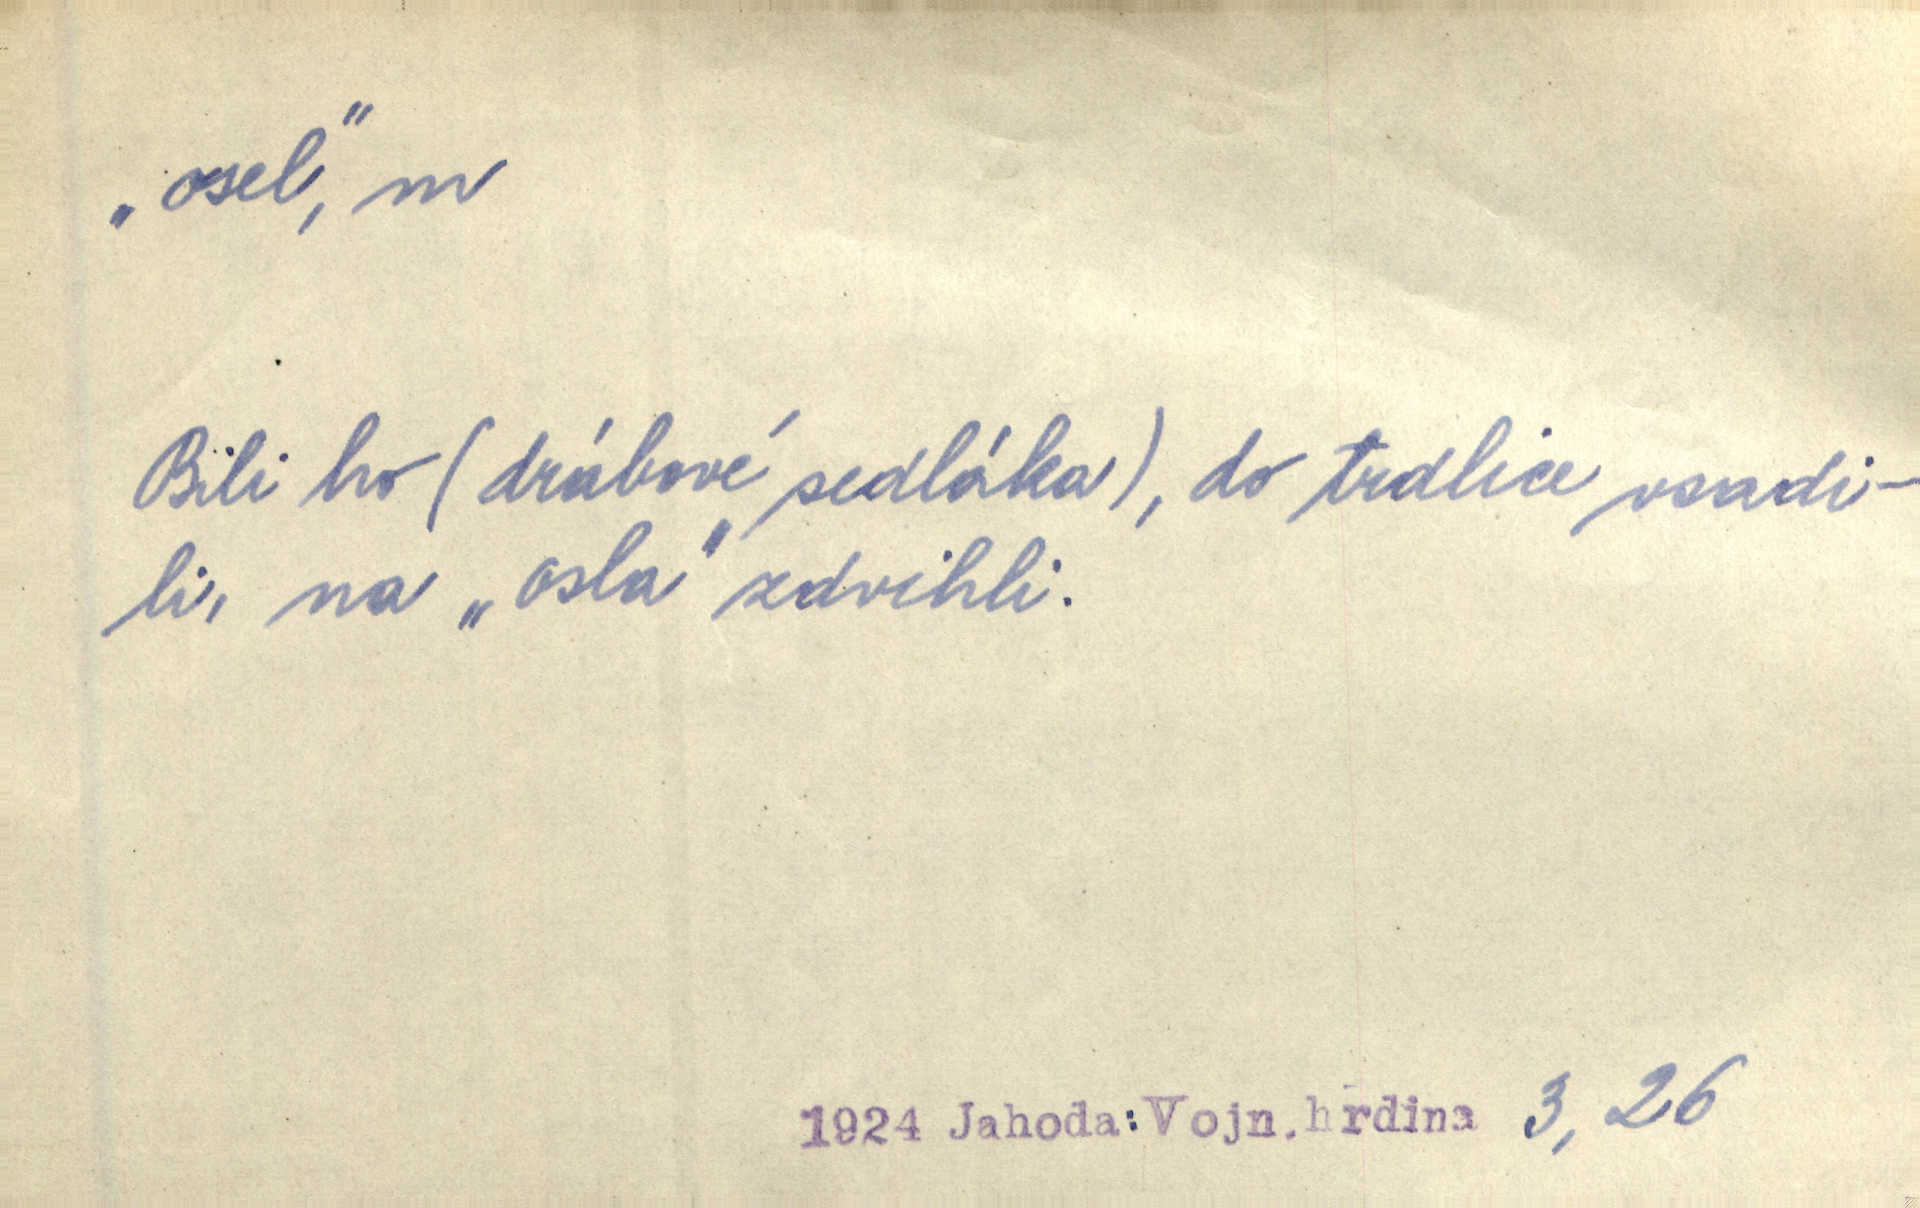 „osel“, m
Bili ho (drábové sedláka), do trdlice vsadi-
li, na „osla“ zdvihli.
1924 Jahoda: Vojn. hrdina 3, 26